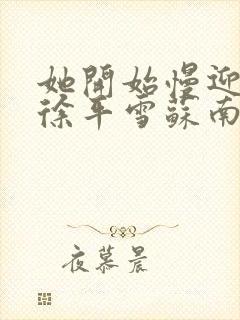 她開始慢迎
徐平雪蘇南
夜慕晨